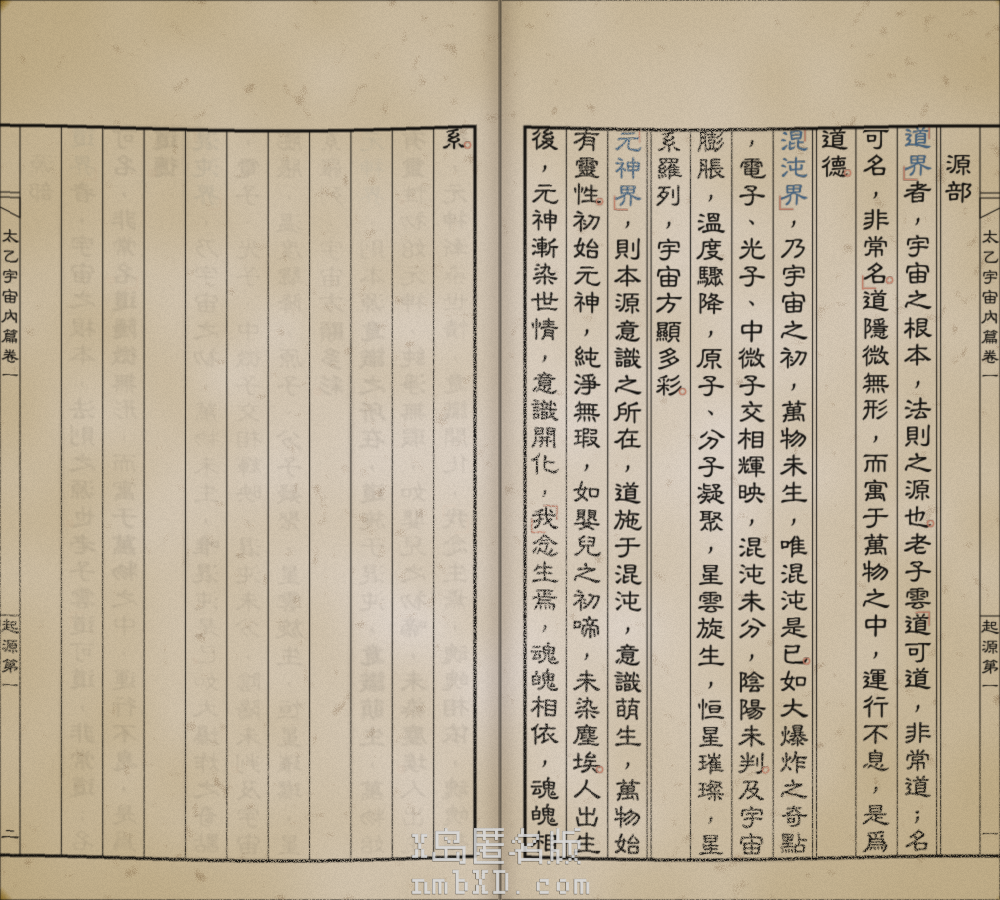 太乙宇宙內篇卷一
起源第一
一
源部
道界者，宇宙之根本，法則之源也。老子雲「道可道，非常道；名
可名，非常名」。道隱微無形，而寓于萬物之中，運行不息，是爲
道德。
混沌界，乃宇宙之初，萬物未生，唯混沌是已。如大爆炸之奇點
，電子、光子、中微子交相輝映，混沌未分，陰陽未判。及宇宙
膨脹，溫度驟降，原子、分子凝聚，星雲旋生，恒星璀璨，星
系羅列，宇宙方顯多彩。
元神界，則本源意識之所在，道施于混沌，意識萌生，萬物始
有靈性。初始元神，純淨無瑕，如嬰兒之初啼，未染塵埃。人出生
後，元神漸染世情，意識開化，「我」念生焉，魂魄相依，魂魄相
系。
太乙宇宙內篇卷一
起源第一
二
X岛匿名版
nmbXD.com